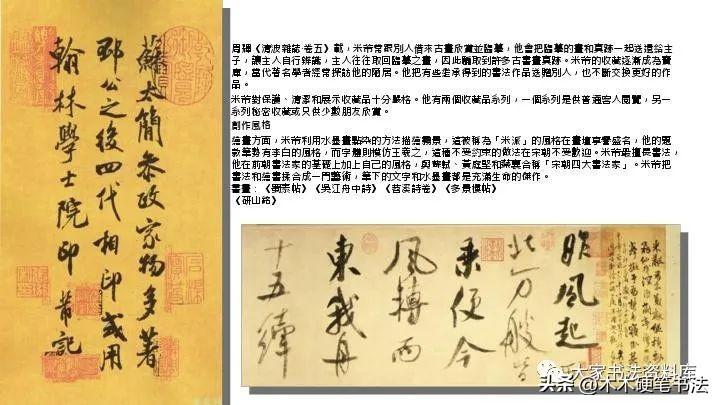 蘇太簡參政家物多著
邳公之後四代相印或用
翰林學士院印 芾記
周輝《清波雜誌·卷五》載，米芾常跟別人借來古畫欣賞並臨摹，他會把臨摹的畫和真跡一起送還給主
子，讓主人自行辨識，主人往往取回臨摹之畫，因此騙取到許多古書畫真跡。米芾的收藏逐漸成為寶
庫，當代著名學者經常探訪他的陋居。他把有些繼承得到的書法作品送贈別人，也不斷交換更好的作
品。
米芾對保護、清潔和展示收藏品十分嚴格。他有兩個收藏品系列，一個系列是供普通客人閱覽，另一
系列秘密收藏或只供少數朋友欣賞。
創作風格
繪畫方面，米芾利用水墨畫點染的方法描繪霧景，這被稱為「米派」的風格在畫壇享譽盛名，他的題
款筆勢有李白的風格，而字體則模仿王羲之，這種不受約束的做法在宋朝不受歡迎。米芾最擅長書法，
他在前朝書法家的基礎上加上自己的風格，與蘇軾、黃庭堅和蔡襄合稱「宋朝四大書法家」。米芾把
書法和繪畫揉合成一門藝術，筆下的文字和水墨畫都是充滿生命的傑作。
書畫：《蜀素帖》《吳江舟中詩》《苕溪詩卷》《多景樓帖》
《研山銘》
昨風起
北万艘皆
乘便今
風轉而
東我舟
十五縴
大家书法资料库
头条 @木木硬笔书法